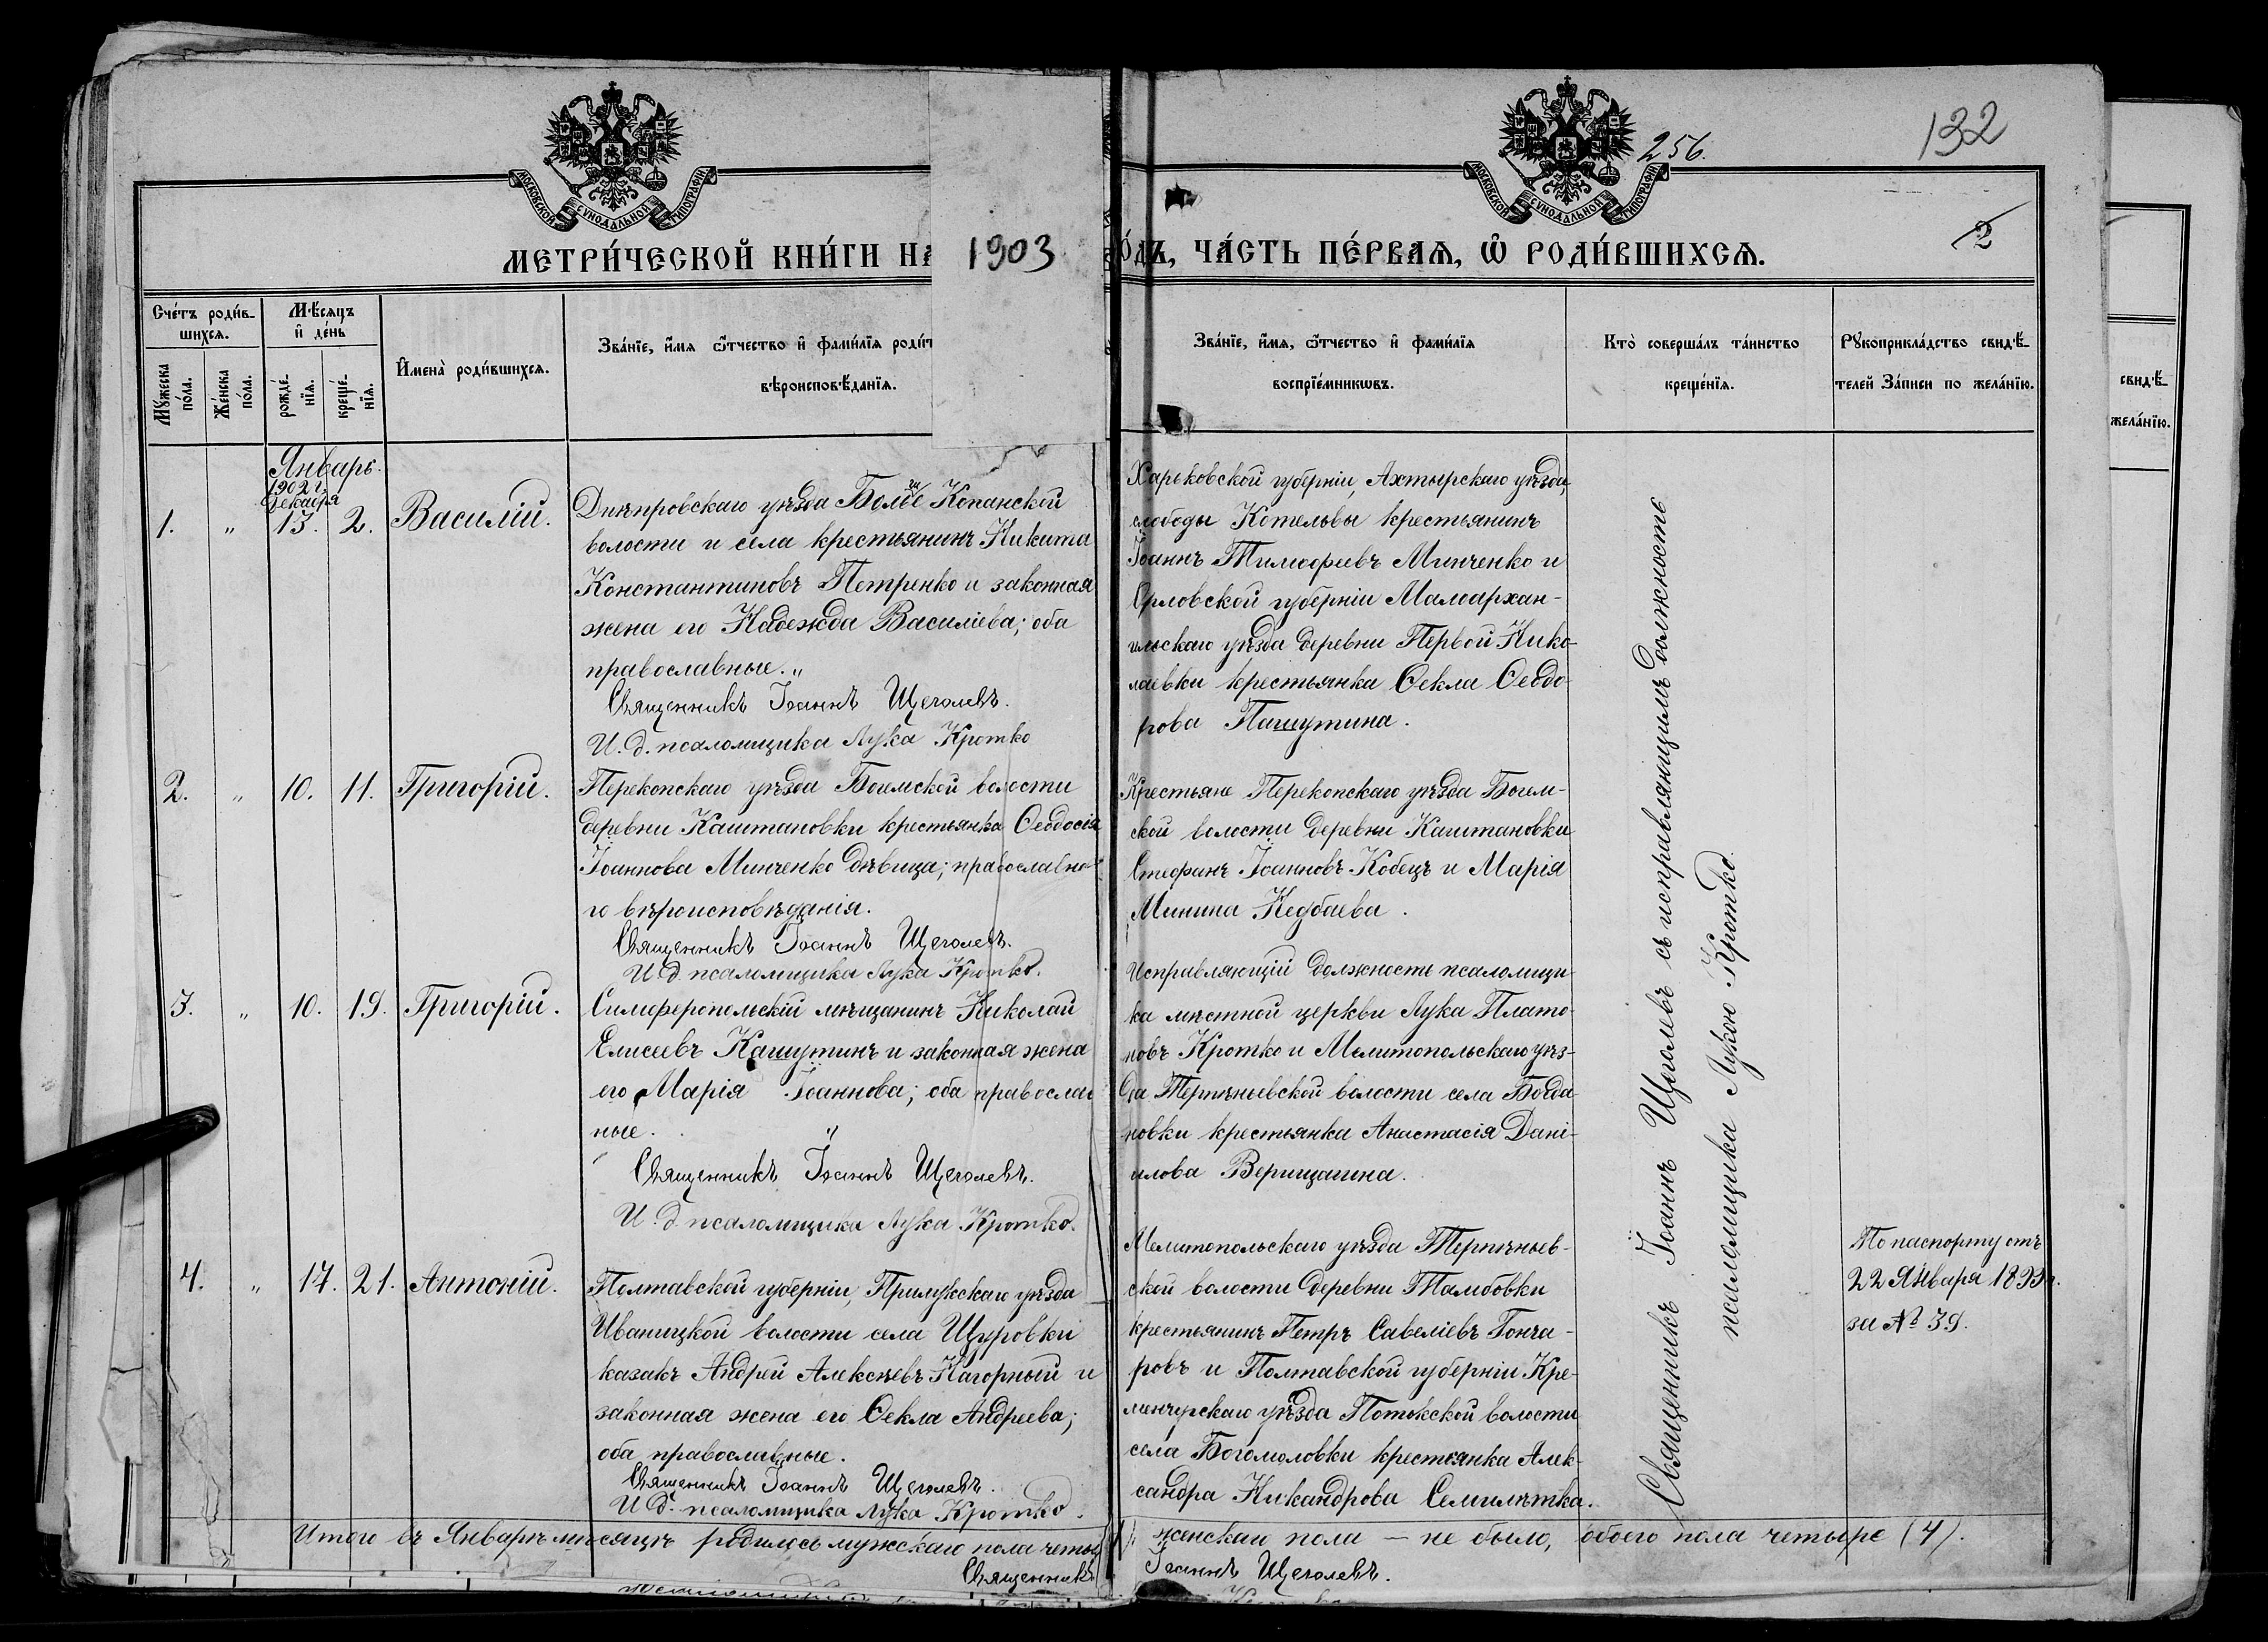 МОСКОВСКОЙ СѴНОДАЛЬНОЙ ТИПОГРАФІИ
МОСКОВСКОЙ СѴНОДАЛЬНОЙ ТИПОГРАФІИ
256.
132
2
МЕТРИ́ЧЕСКОЙ КНИ́ГИ НА 1903 ГО́ДЪ, ЧА́СТЬ ПЕ́РВАѦ, Ѡ҆ РОДИ́ВШИХСѦ.
Счéтъ роди́в-
шихсѧ.
Мꙋ́жеска
по́ла.
Же́нска
по́ла.
Мѣ́сѧцъ
и҆ де́нь
рожде́-
нїѧ.
креще́-
нїѧ.
И҆мена̀ роди́вшихсѧ.
Зва́нїе, и҆́мѧ ѻ҆́тчество и҆ фами́лїѧ роди́т
вѣроисповѣ́данїѧ.
Зва́нїе, и҆́мѧ, ѻ҆́тчество и҆ фами́лїѧ
воспрїе́мникѡвъ.
Кто̀ соверша́лъ та́инство
креще́нїѧ.
Рꙋкоприкла́дство свидѣ́-
телей За́писи по жела́нїю.
свидѣ́-
жела́нїю.
Январь.
1902 г.
Декабря
1. " 13. 2. Василій.
Днѣпровскаго уѣзда Больше Копанской
волости и села крестьянинъ Никита
Константиновъ Петренко и законная
жена его Надежда Василіева; оба
православные. "
Священникъ Іоаннъ Щеголевъ.
И. д. псаломщика Лука Кротко
Харьковской губерніи, Ахтырскаго уѣзда,
слободы Котельвы крестьянинъ
Іоаннъ Тимофеевъ Минченко и
Орловской губерніи Малоархан-
гельскаго уѣзда деревни Первой Нико-
лаевки крестьянка Ѳекла Ѳеодо-
рова Пашутина.
2. " 10. 11. Григорій.
Перекопскаго уѣзда Богемской волости
деревни Каштановки крестьянка Ѳеодосія
Іоаннова Минченко дѣвица; православна-
го вѣроисповѣданія.
Священникъ Іоаннъ Щеголевъ.
И. д. псаломщика Лука Кротко.
Крестьяне Перекопскаго уѣзда Богем-
ской волости деревни Каштановки
Стефанъ Іоанновъ Кобецъ и Марія
Минина Кедбаева.
3. " 10. 19. Григорій.
Симферопольскій мѣщанинъ Николай
Елисеевъ Кашутинъ и законная жена
его Марія Іоаннова; оба православ
ные. "
Священникъ Іоаннъ Щеголевъ.
И. д. псаломщика Лука Кротко.
Исправляющій должность псаломщи-
ка мѣстной церкви Лука Плато-
новъ Кротко и Мелитопольскаго уѣз-
да Терпѣньевской волости села Богда-
новки крестьянка Анастасія Дані-
илова Верищагина.
4. " 17. 21. Антоній.
Полтавской губерніи, Прилукскаго уѣзда
Иваницкой волости села Щуровки
казакъ Андрей Алексѣевъ Нагорный и
законная жена его Ѳекла Андреева;
оба православные.
Священникъ Іоаннъ Щеголевъ.
И. д. псаломщика Лука Кротко.
Мелитопольскаго уѣзда Терпѣньев-
ской волости деревни Тамбовки
крестьянинъ Петръ Савеліевъ Гонча-
ровъ и Полтавской губерніи Кре-
менчугскаго уѣзда Потокской волости
села Богомоловки крестьянка Алек-
сандра Никандрова Семилѣтка.
Священникъ Іоаннъ Щеголевъ съ исправляющимъ должность
псаломщика Лукою Кротко.
По паспорту отъ
22 Января
за № 39.
Итого въ Январѣ мѣсяцѣ родилось мужскаго пола четы женскаго пола — не было, обоего пола четыре (4).
Священникъ Іоаннъ Щеголевъ.